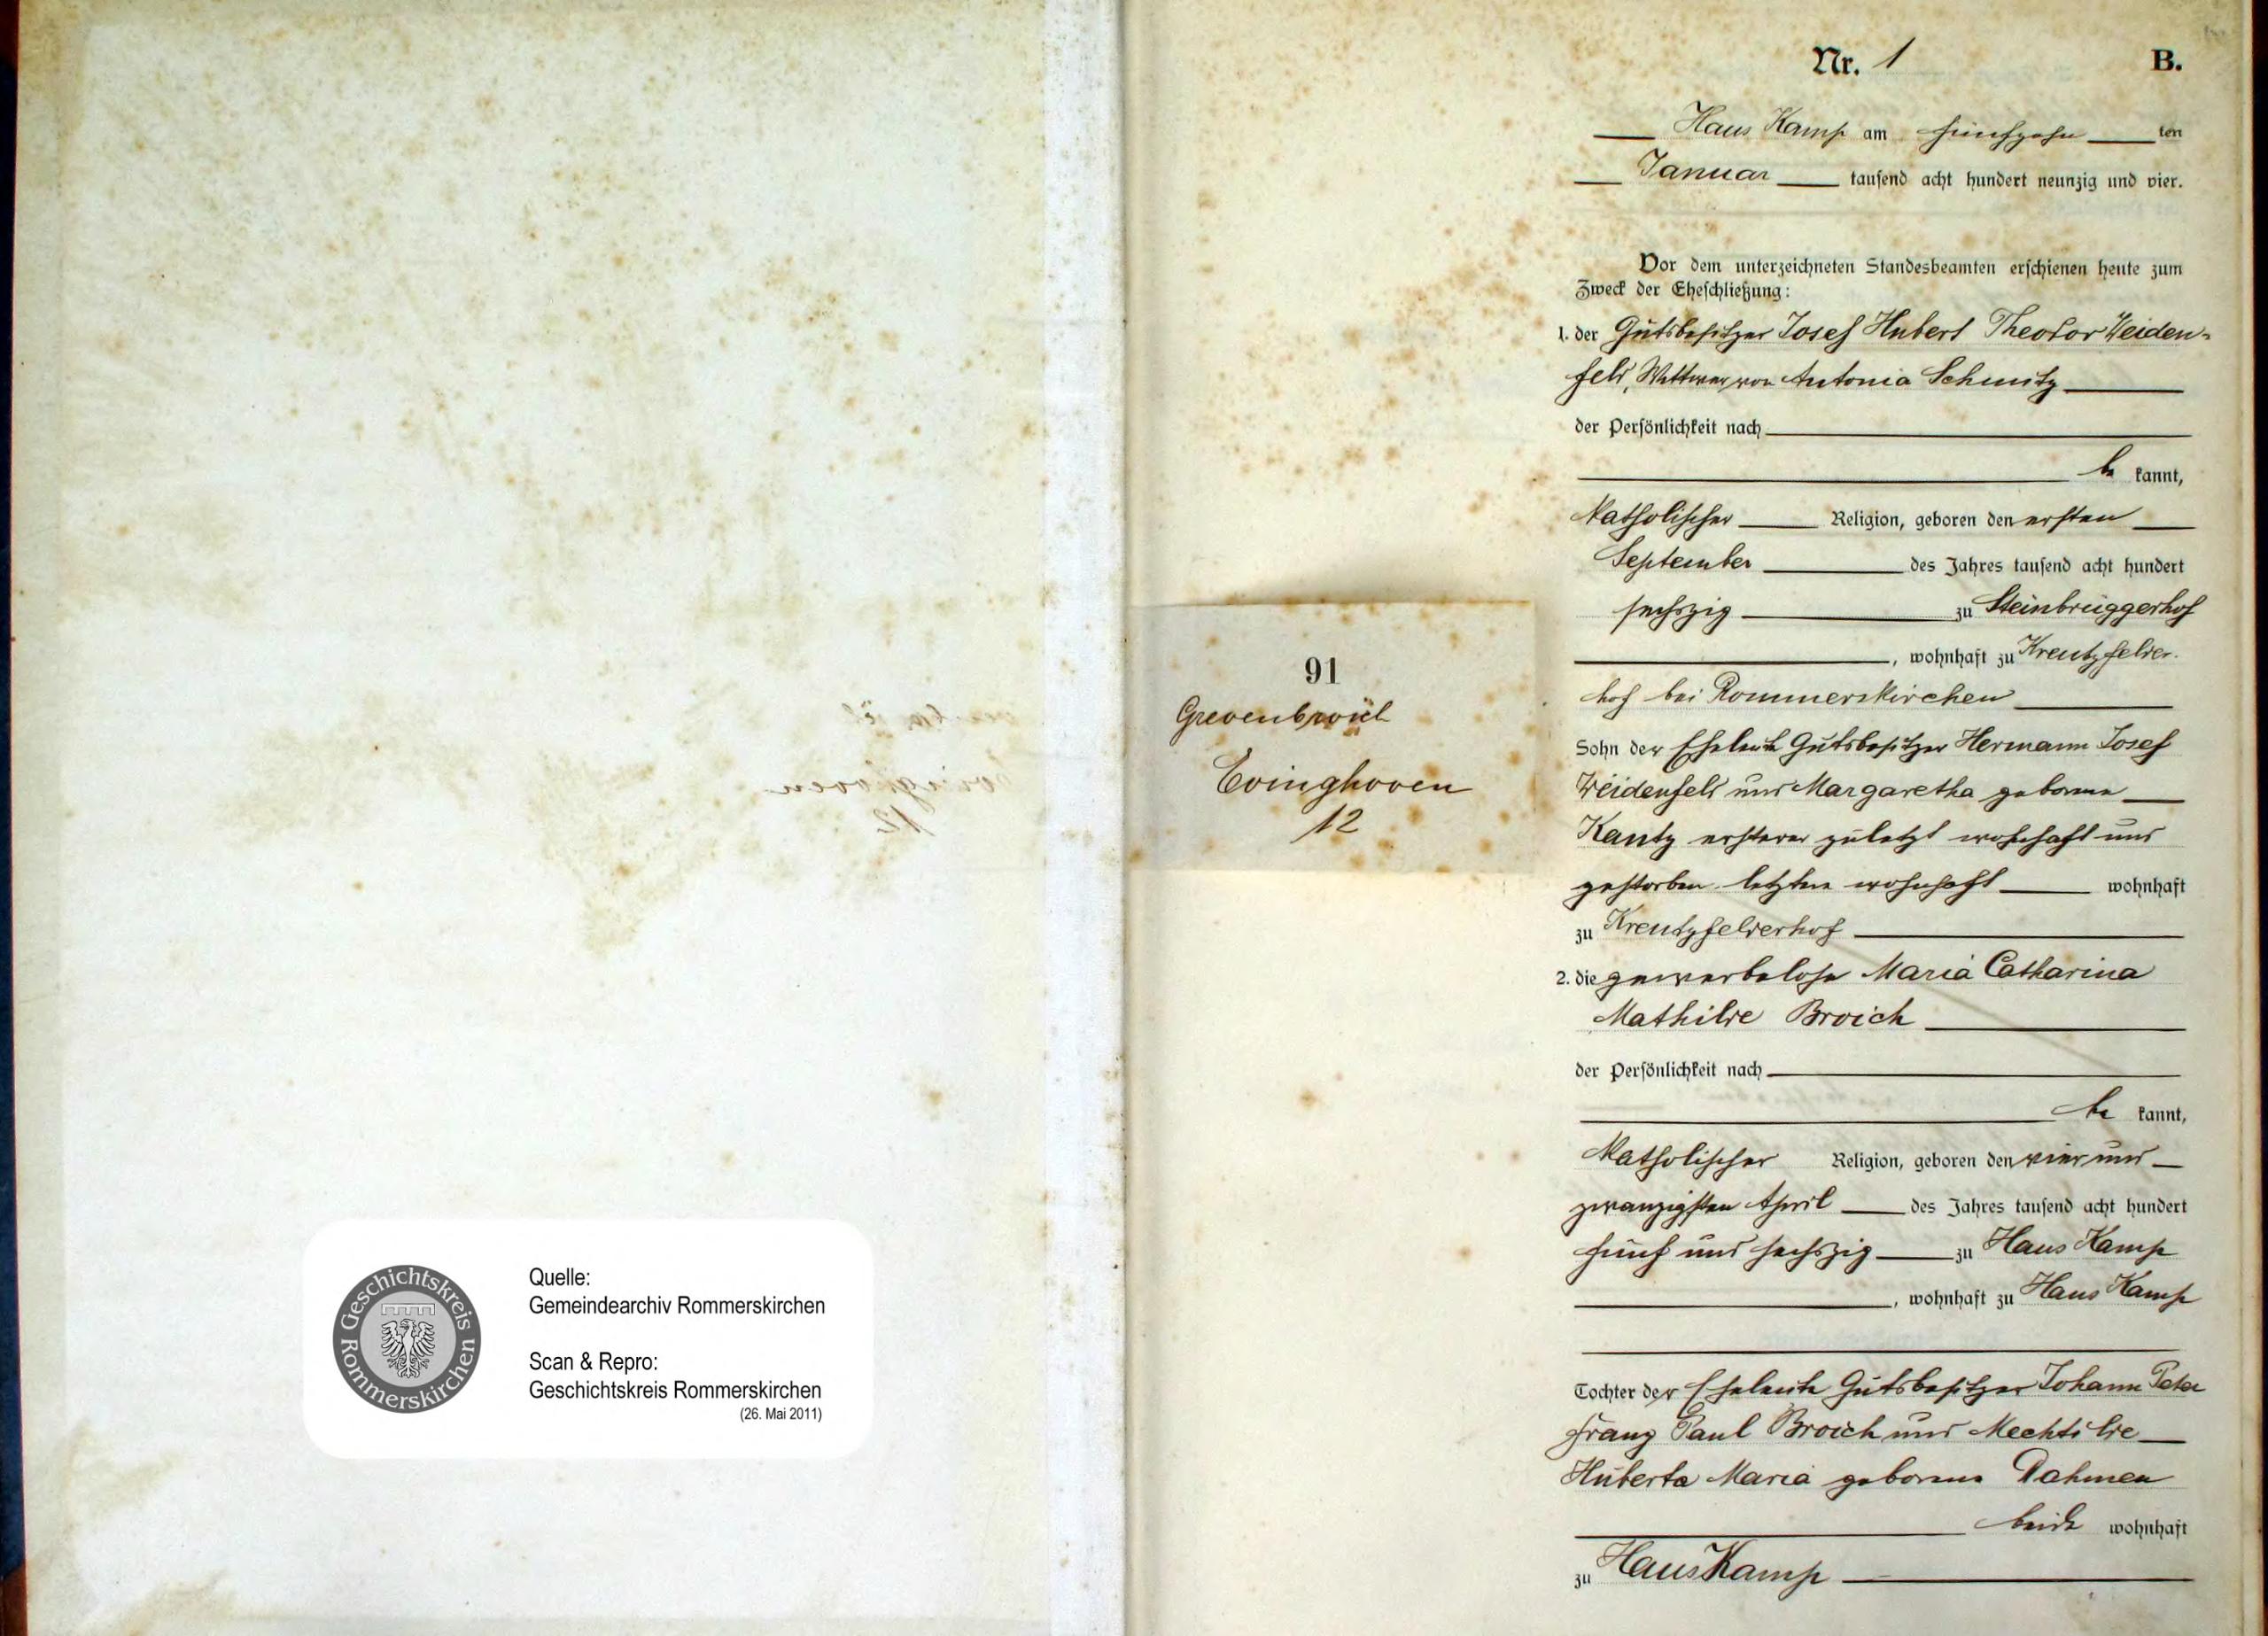 Quelle:
Gemeindearchiv Rommerskirchen
Scan & Repro:
Geschichtskreis Rommerskirchen
(26. Mai 2011)
Geschichtskreis Rommerskirchen
91
Grevenbroich
Evinghoven
12
Nr. 1 B.
Haus Kamp am fünfzehn ten
Januar tausend acht hundert neunzig und vier.
Vor dem unterzeichneten Standesbeamten erschienen heute zum
Zweck der Eheschließung:
1. der Gutsbesitzer Josef Hubert Theodor Weiden-
feld, Wittwer von Antonia Schmitz
der Persönlichkeit nach
be kannt,
katholischer Religion, geboren den ersten
September des Jahres tausend acht hundert
sechszig zu Steinbrüggerhof
, wohnhaft zu Kreutzfelder-
hof bei Rommerskirchen
Sohn der Eheleute Gutsbesitzer Hermann Josef
Weidenfeld und Margaretha geborene
Kautz ersterer zuletzt wohnhaft und
gestorben letztere wohnhaft wohnhaft
zu Kreutzfelderhof
2. die gewerbelose Maria Catharina
Mathilde Broich
der Persönlichkeit nach
be kannt,
katholischer Religion, geboren den vier und
zwanzigsten April des Jahres tausend acht hundert
fünf und sechszig zu Haus Kamp
, wohnhaft zu Haus Kamp
Tochter der Eheleute Gutsbesitzer Johann Peter
Franz Paul Broich und Mechtilde
Huberta Maria geborene Dahmen
beide wohnhaft
zu Haus Kamp